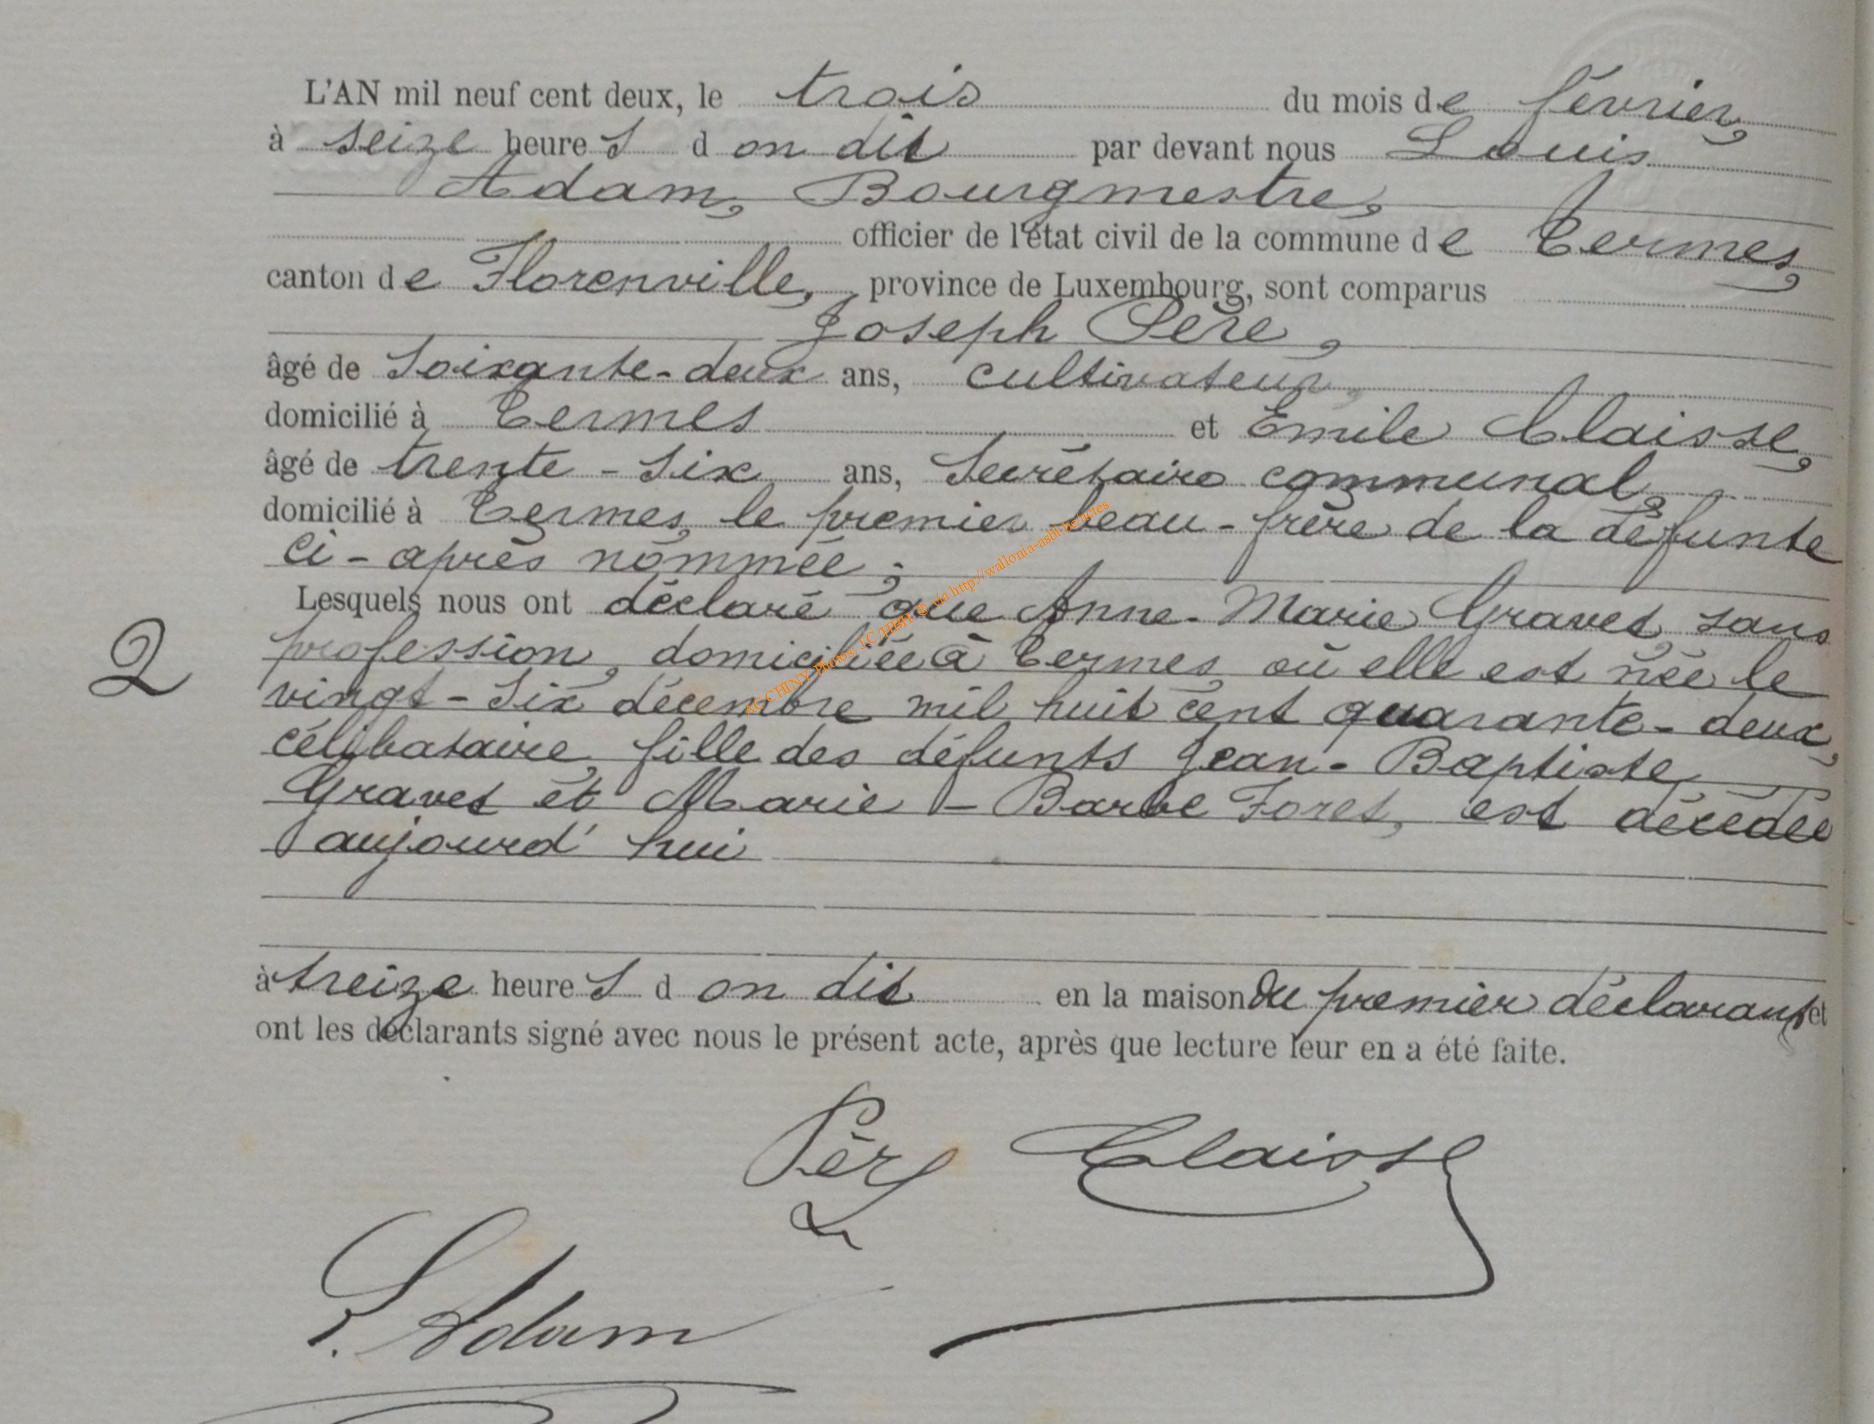 L'AN mil neuf cent deux, le trois du mois de février,
à seize heures d on dit par devant nous Louis
Adam, Bourgmestre,
officier de l'état civil de la commune de Termes,
canton de Florenville, province de Luxembourg, sont comparus
Joseph Père,
âgé de soixante-deux ans, cultivateur,
domicilié à Termes et Emile Claisse,
âgé de trente-six ans, Secrétaire communal,
domicilié à Termes, le premier beau-frère de la défunte
ci-après nommée;
Lesquels nous ont déclaré que Anne-Marie Gravet, sans
profession, domiciliée à Termes, où elle est née le
2
vingt-six décembre mil huit cent quarante-deux,
célibataire, fille des défunts Jean-Baptiste
Gravet et Marie-Barbe Foret, est décédée
aujourd'hui
à treize heures d on dit en la maison du premier déclarant et
ont les déclarants signé avec nous le présent acte, après que lecture leur en a été faite.
Père Claisse
L. Adam